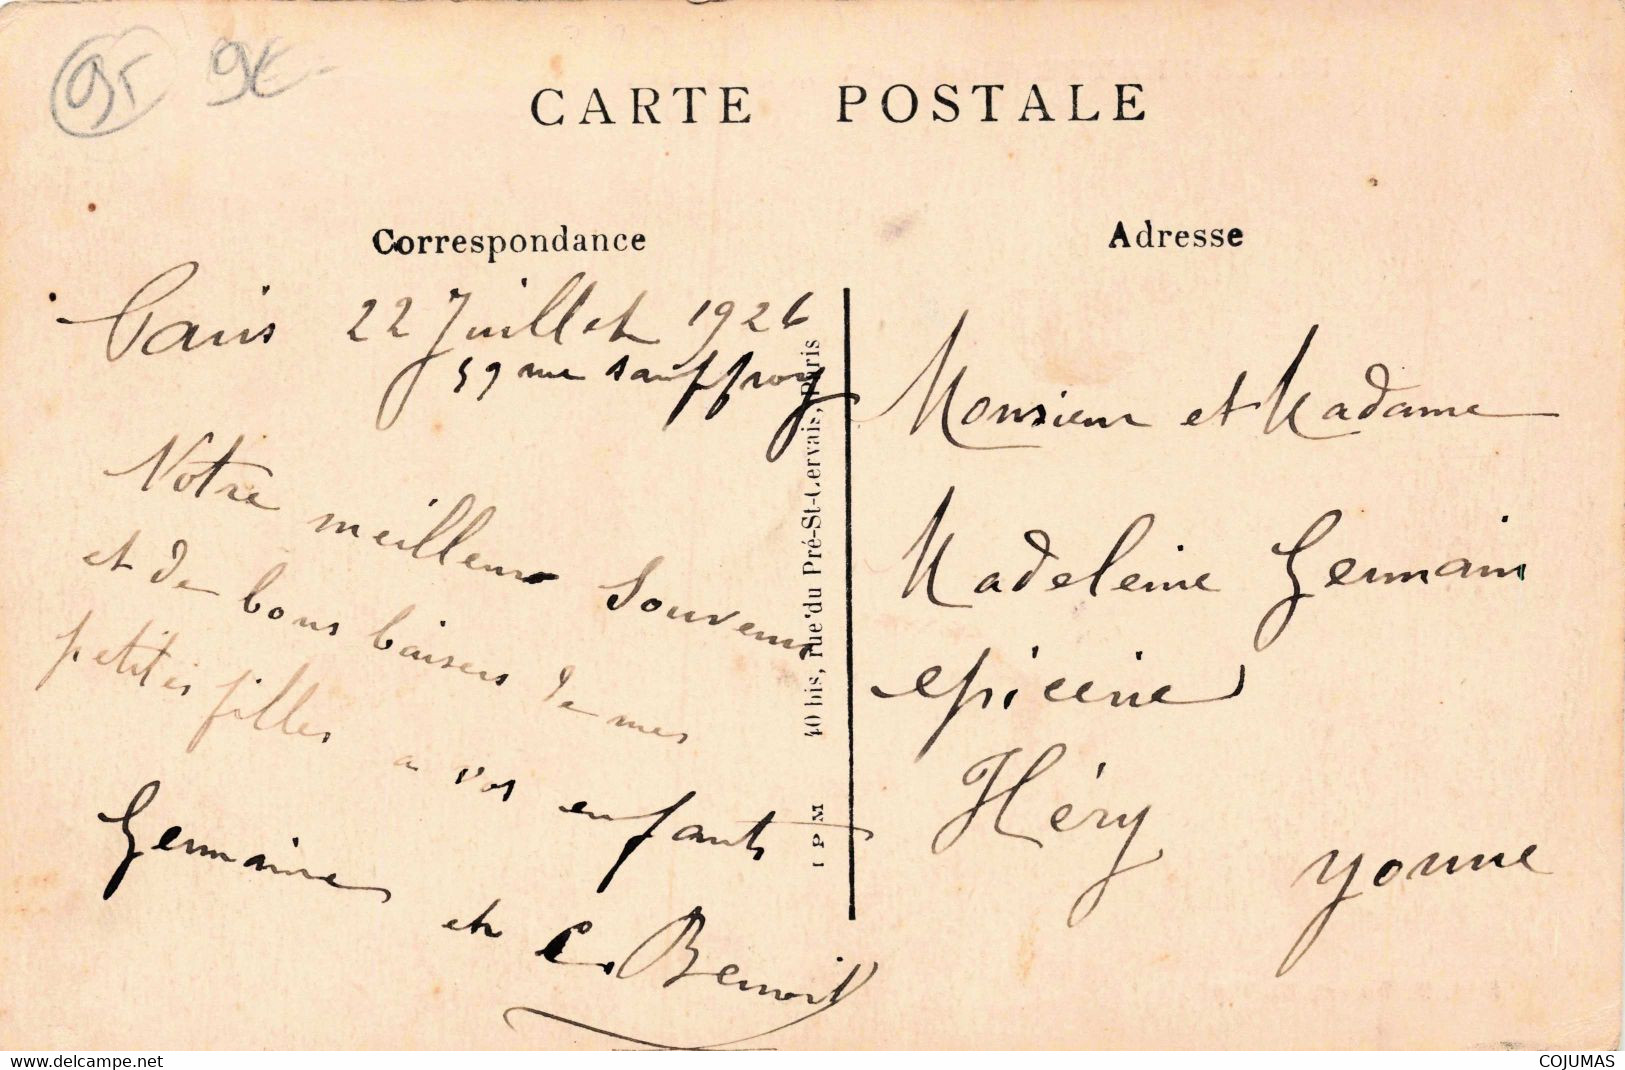 95 9€-
CARTE POSTALE
Correspondance
Paris 22 Juillet 1926
59 rue Sauffroy
Notre meilleur Souvenir
et de bons baisers de mes
petites filles a vos enfants
Germaine et C. Benoit
40 bis, rue du Pré-St-Gervais, Paris
I P M
Adresse
Monsieur et Madame
Madeleine Germain
epicerie
Héry
Yonne
www.delcampe.net
COJUMAS